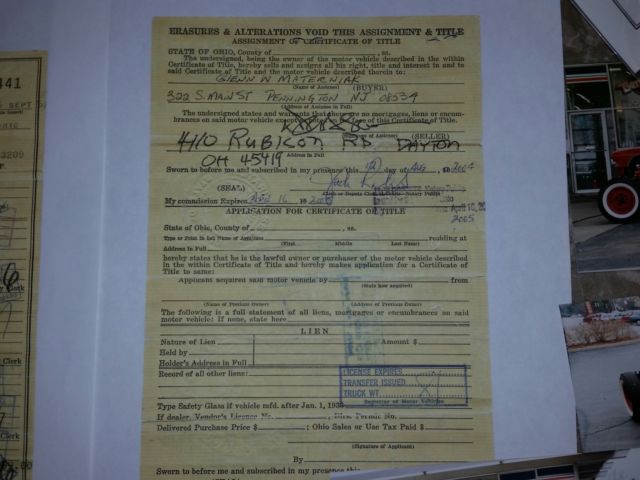 ERASURES & ALTERATIONS VOID THIS ASSIGNMENT & TITLE
ASSIGNMENT OF CERTIFICATE OF TITLE
STATE OF OHIO, County of ss.
The undersigned, being the owner of the motor vehicle described in the within
Certificate of Title, hereby sells and assigns all his right, title and interest in and to
said Certificate of Title and the motor vehicle described therein to:
GLENN W. MATERNIAK
(Name of Assignee) (BUYER)
322 S. MAIN ST PENNINGTON NJ 08534
(Address in Full)
The undersigned states and warrants that there are no mortgages, liens or encum-
brances on said motor vehicle except as noted on the face of this Certificate of Title.
(SELLER)
4410 RUBICON RD. DAYTON
Address in Full
OH 45419
Sworn to before me and subscribed in my presence this day of AUG 2004
(SEAL)
My commission Expires
April 10, 20
2005
APPLICATION FOR CERTIFICATE OF TITLE
State of Ohio, County of ss.
Type or Print in Ink Name of Applicant residing at
(First) Middle Last Name)
Address in Full
hereby states that he is the lawful owner or purchaser of the motor vehicle described
in the within Certificate of Title and hereby makes application for a Certificate of
Title to same:
Applicant acquired said motor vehicle by from
(State how acquired)
(Name of Previous Owner) (Address of Previous Owner)
The following is a full statement of all liens, mortgages or encumbrances on said
motor vehicle: If none, state here
LIEN
Nature of Lien Amount $
Held by
Holder's Address in Full
Record of all other liens:
LICENSE EXPIRES
TRANSFER ISSUED
TRUCK WT.
Registrar of Motor Vehicles
Type Safety Glass if vehicle mfd. after Jan. 1, 193
If dealer, Vendor's License No. Permit No.
Delivered Purchase Price $ ; Ohio Sales or Use Tax Paid $
(Signature of Applicant)
By
Sworn to before me and subscribed in my presence this
441
3209
Clerk
Clerk